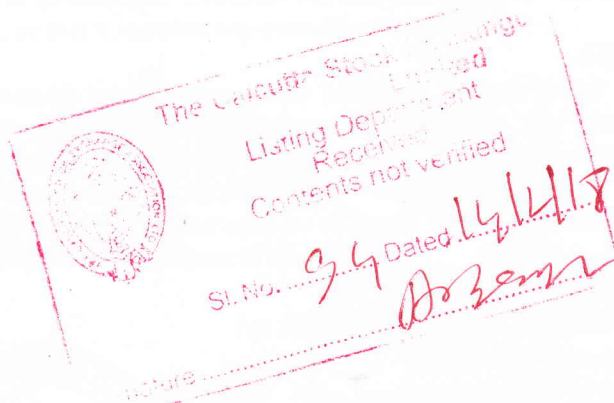 The Calcutta Stock Exchange
Limited
Listing Department
Received
Contents not verified
Sl. No. ........ 94 Dated 14/12/18